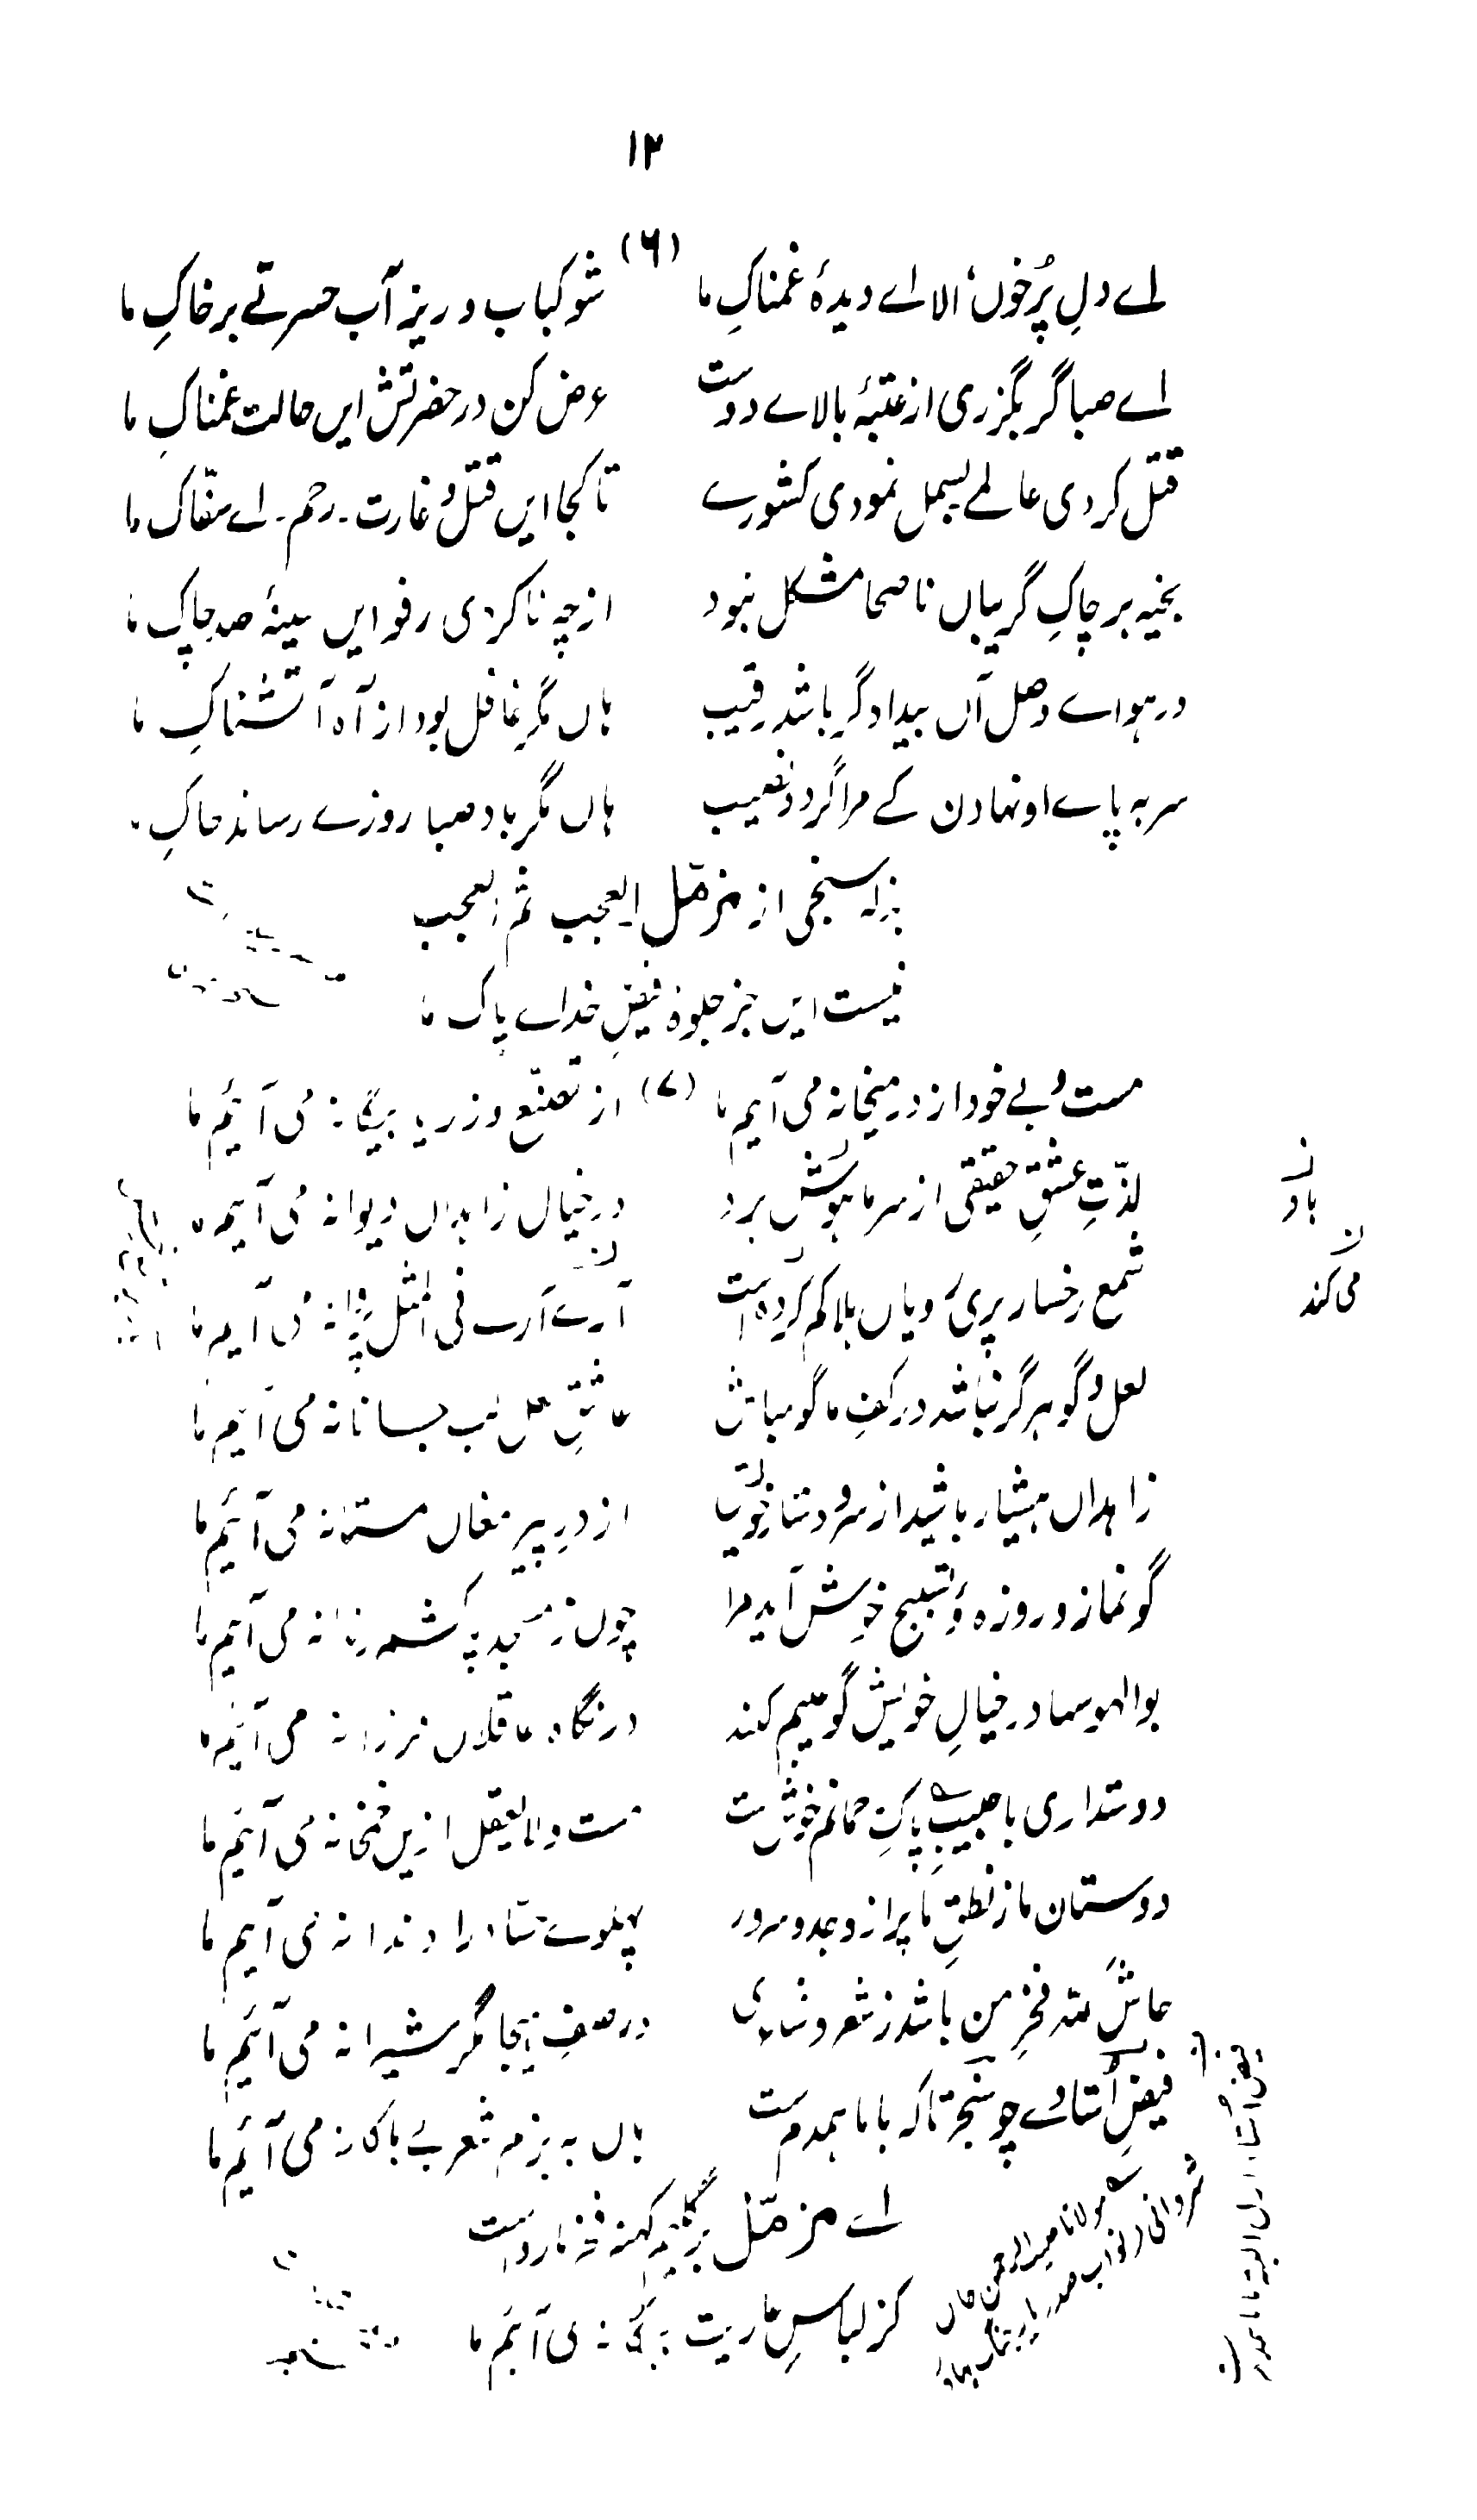 ۱۲
(۶)
اے دلِ پُر خوں الا اے دیدۂ غمناکِ ما شو کباب و ریز آب حسرتے بر خاکِ ما
اے صبا گر بگزری از عتبۂ بالاے دوست عرض کن در حضرتش ایں حالت غمناکِ ما
قتل کردی عالمے بسمل نمودی کشورے تا کجا ایں قتل و غارت۔ رحم۔ اے سفّاک ما
بخیہ بر چاکِ گریباں ناصحا مشکل نبود از چہ نا کردی رفو ایں سینۂ صد چاکِ ما
در ہواے وصل آں بیدادگر باشد رقیب ہاں مگر غافل بود از آہ آتشناکِ ما
سر بہ پاے او نہادن کے مرا گردد نصیب ہاں مگر باد صبا روزے رساند خاکِ ما
بذلہ سنجی از مزمّل العجب ثم العجب
نیست ایں جز جلوۂ فیضِ خداے پاک ما
(۷)
مست و بے خود از در میخانہ می آیم ما از تصنّع وز ریا بیگانہ می آیم ما
لذّتِ عشقِ حقیقی از سرِ ما ہوش برد در خیال زاہداں دیوانہ می آیم ما
شمع رخسار پری رویاں ہلاکم کردہ است آرے آرے فی المثل پروانہ می آیم ما
لعل و گوہر گر نباشد در کفِ ما گو مباش عاشقِ لعل لب جانانہ می آیم ما
زاہداں ہشیار باشید از سر و دستار خود از درِ پیرِ مغاں مستانہ می آیم ما
گو نماز و روزہ و تسبیح خوش آید مرا چوں ز مسجد پاکشم رندانہ می آیم ما
بوالہوسہا در خیالِ خویش گو بیہم کنند در نگاہ عاقلاں فرزانہ می آیم ما
دوستداری با حبیبِ پاکِ خانم خوشتر است مست و لایعقل ازیں خمخانہ می آیم ما
دوستان ما ز نطقِ ما پر از وجد و سرور پہلوے حسّاد را دندانہ می آیم ما
حاش للہ فخرِ من باشد ز شعر و شاعری در صفِ ہیجا مگر شیرانہ می آیم ما
فیضِ اُستادے چو سنجر تا کہ با ما ہمدم ست ہاں بہ بزم شعر بے باکانہ می آیم ما
اے مزمّل
کز لباسِ عاریت بیگانہ می آیم ما
باد
می کند